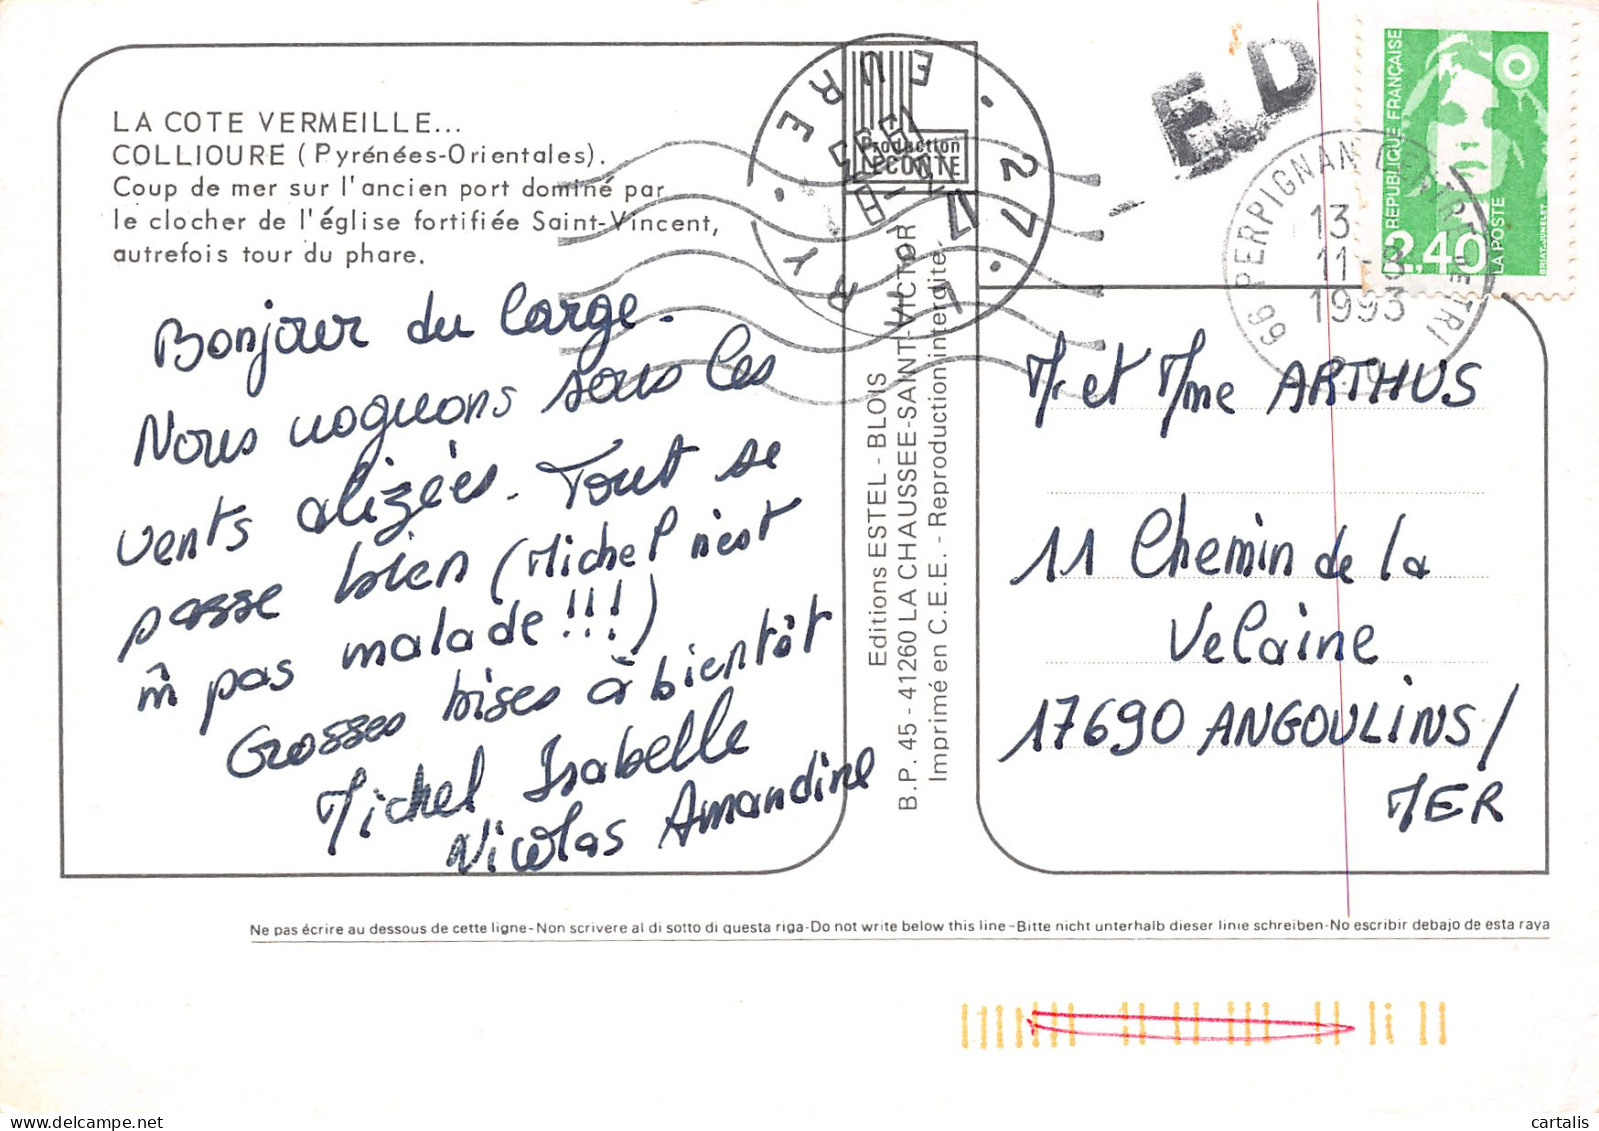 LA COTE VERMEILLE...
COLLIOURE (Pyrénées-Orientales).
Coup de mer sur l'ancien port dominé par
le clocher de l'église fortifiée Saint-Vincent,
autrefois tour du phare.
Bonjour du large.
Nous voguons sous les
vents alizées. Tout se
passe bien (Michel n'est
m̂ pas malade!!!)
Grosses bises à bientôt
Michel Isabelle
Nicolas Amandine
Production
LECONTE
27. EVRY. EURE.
Editions ESTEL - BLOIS
B.P. 45 - 41260 LA CHAUSSEE-SAINT-VICTOR
Imprimé en C.E.E. - Reproduction interdite
F.D
66 PERPIGNAN CENTRE DE TRI
13
11-8
1993
REPUBLIQUE FRANÇAISE
2,40
LA POSTE
M et Mme ARTHUS
11 Chemin de la
Velaine
17690 ANGOULINS/
MER
Ne pas écrire au dessous de cette ligne-Non scrivere al di sotto di questa riga-Do not write below this line-Bitte nicht unterhalb dieser linie schreiben-No escribir debajo de esta raya
cartalis